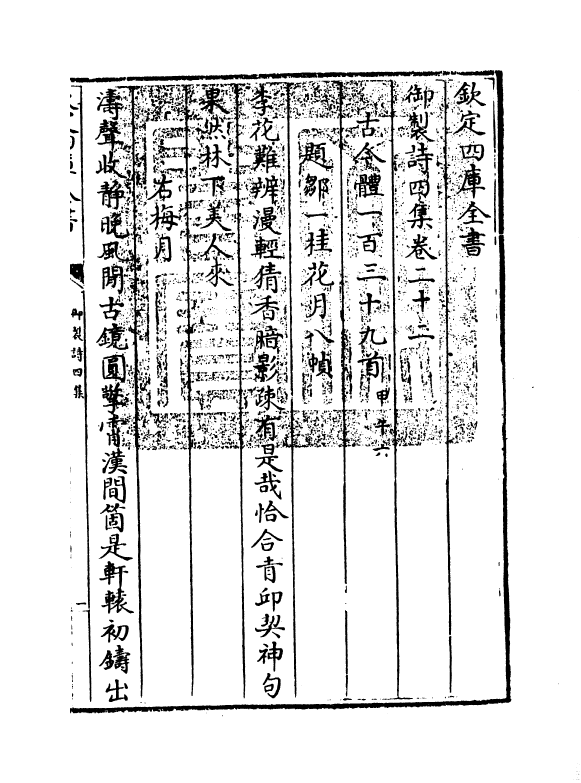 欽定四庫全書
御製詩四集卷二十二
古今體一百三十九首甲午六
題鄒一桂花月八幀
李花難辨漫輕猜香暗影疎有是哉恰合青邱契神句
果然林下美人來
右梅月
濤聲收静晚風閒古鏡圓擎霄漢間箇是軒轅初鑄出
御製詩四集
一